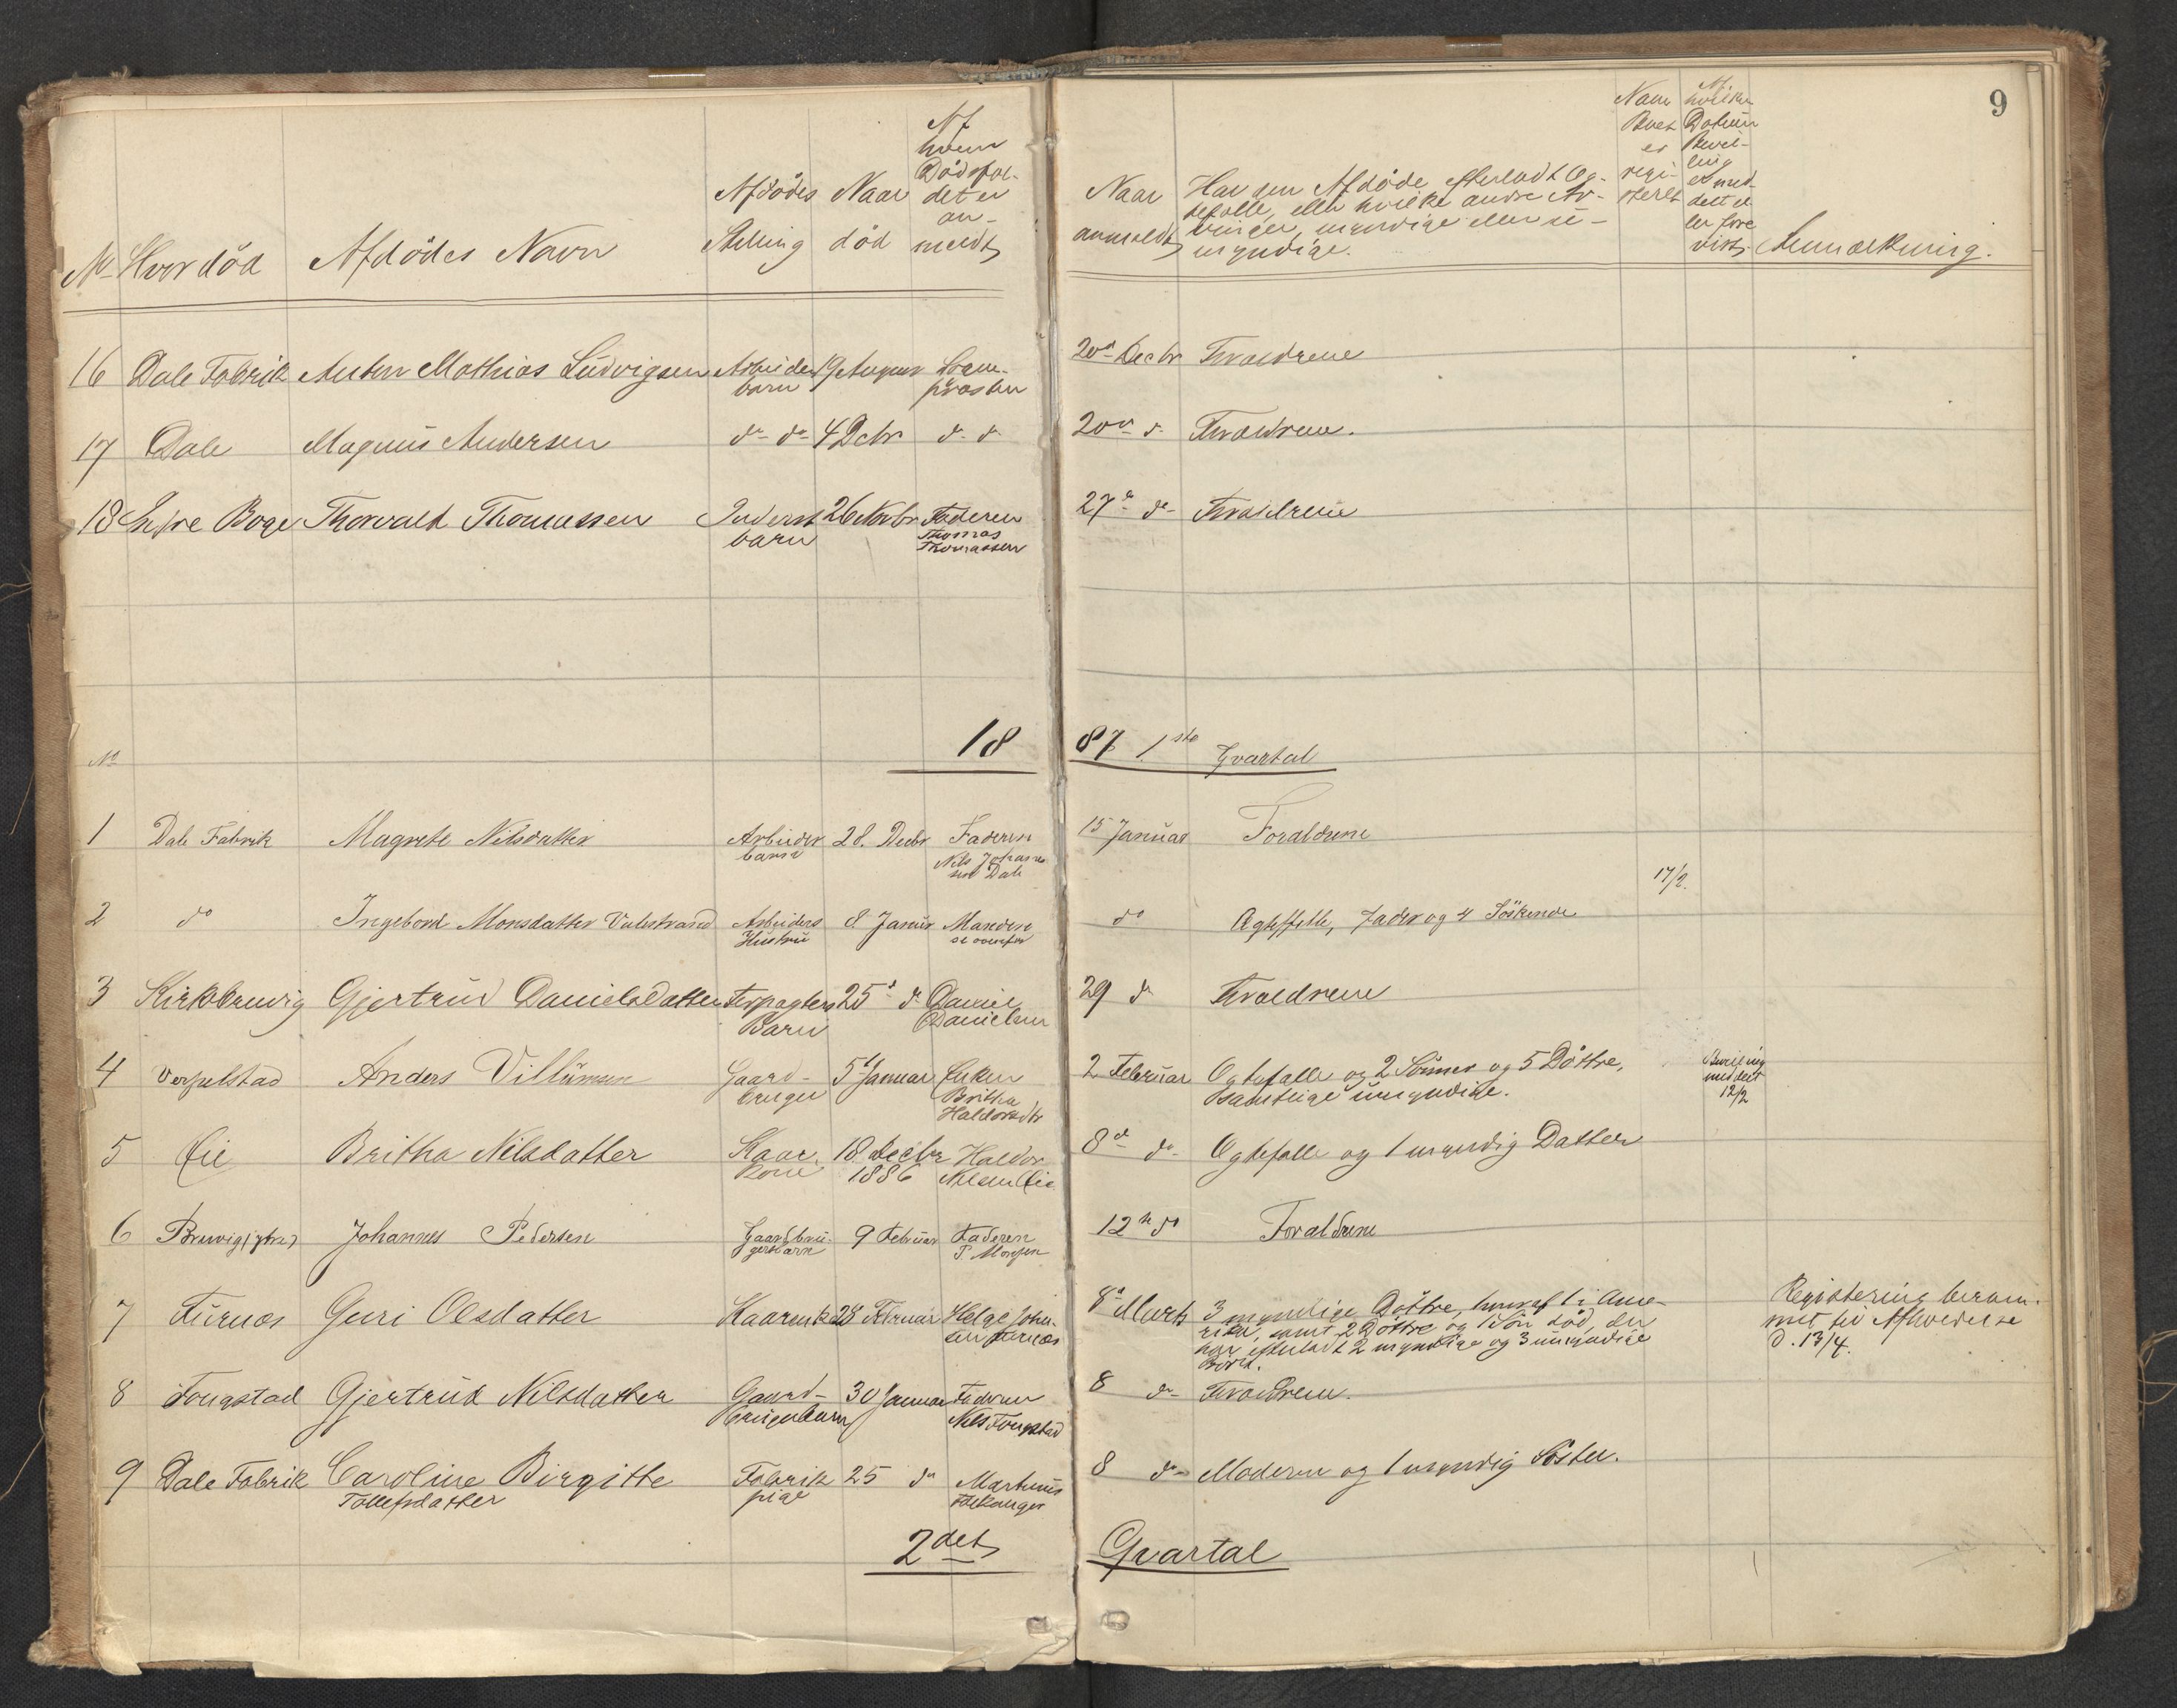 9
No Hvor død Afdødes Navn Afdødes Stilling Naar død Af hvem Dødsfaldet er anmeldt
Naar anmeldt Har den Afdøde efterladt Ægtefælle, eller hvilke andre Arvinger, myndige eller umyndige. Naar Boet er registeret Af hvilken Datum Bevilling er meddelt eller forevist Anmærkning.
16 Dale Fabrik Anton Mathias Ludvigsen Arbeider barn 19 August Sognepræsten 20de Decbr Forældrene
17 Dale Magnus Andersen do do 4 Dcbr d. d. 20de d. Forældrene.
18 Indre Boge Thorvald Thomassen Inderst barn 26 Novbr Faderen Thomas Thomassen 27de do Forældrene
18 87 1ste Qvartal
No
1 Dale Fabrik Magrete Nilsdatter Arbeider barn 28. Decbr Faderen Nils Johannesen Dale 15 Januar Forældrene
17/2.
2 do Ingebord Monsdatter Valestrand Arbeiders Hustru 8 Januar Manden se ovenfor do Ægtefælle, Fader og 4 Söskende
3 Kirkbruvig Gjertrud Danielsdatter Forpagters Barn 25de d. Daniel Danielsen 29 do Forældrene
4 Verpelstad Anders Villumsen Gaardbruger 5 Januar Enken Britha Haldorsdtr 2 Februar Ægtefælle og 2 Sönner og 5 Döttre, samtlige umyndige. Bevilling meddelt 12/2
5 Eie Britha Nilsdatter Kaarkone 18 Decbr 1886 Haldor Nilsen Eie 8de do Ægtefælle og 1 myndig Datter
6 Bruvig (ytre) Johannes Pedersen Gaardbrugersbarn 9 Februar Faderen P. Monsen 12te do Forældrene
7 Furnæs Guri Olsdatter Kaarenke 28 Februar Helge Johnsen Furnæs 8de Marts 3 myndige Döttre, hvoraf 1 i Amerika, samt 2 Döttre og 1 Sön död, der har efterladt 2 myndige og 3 umyndige Börn. Registering berammet til Afholdelse d. 13/4.
8 Fougstad Gjertrud Nilsdatter Gaardbrugerbarn 30 Januar Faderen Nils Fougstad 8 do Forældrene.
9 Dale Fabrik Caroline Birgitte Tollefsdatter Fabrik pige 25 do Martinus 8 do Moderen og 1 myndig Söster.
2det Qvartal